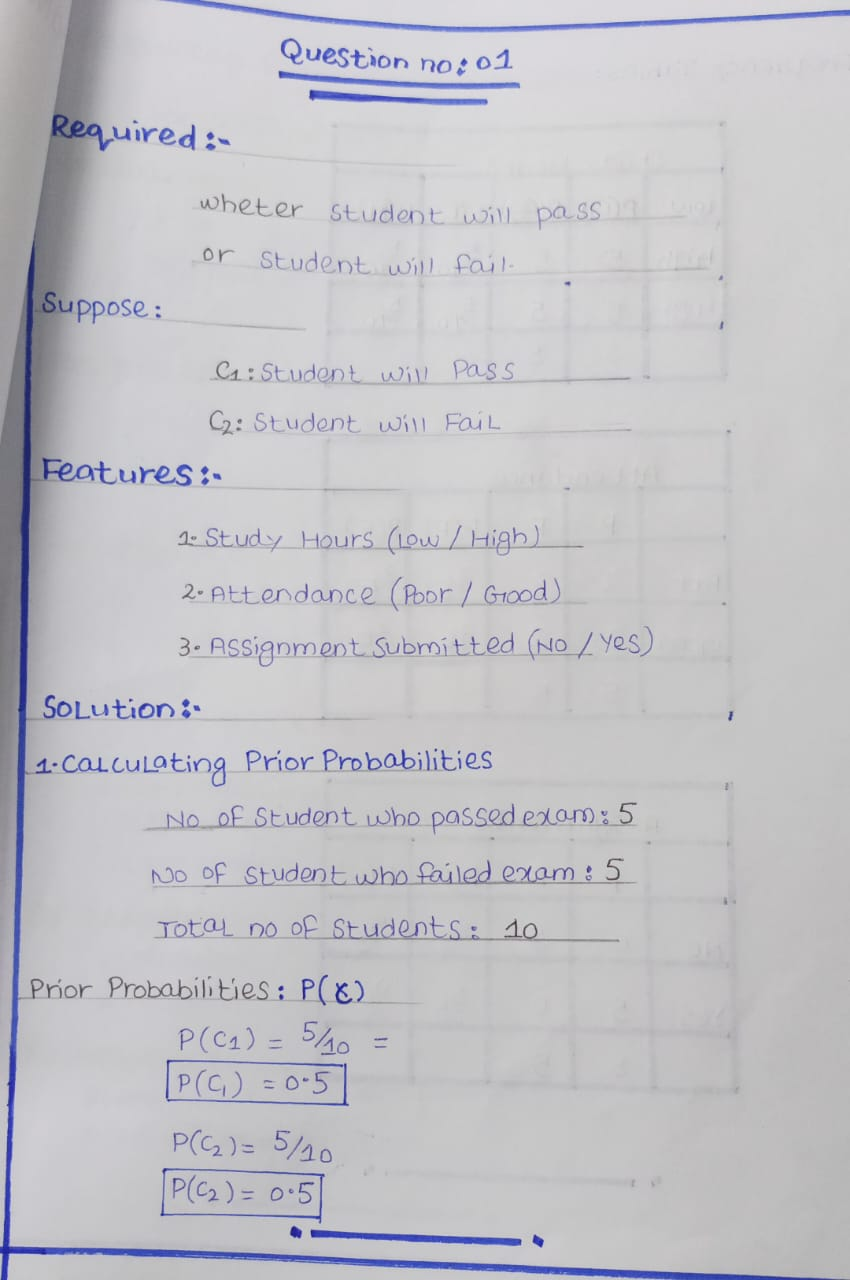 Question no: 01
Required :-
wheter student will pass
or student will fail.
Suppose :
C1 : Student will Pass
C2 : Student will Fail
Features :-
1. Study Hours (Low / High)
2. Attendance (Poor / Good)
3. Assignment Submitted (No / Yes)
Solution :-
1. Calculating Prior Probabilities
No of Student who passed exam : 5
No of Student who failed exam : 5
Total no of Students : 10
Prior Probabilities : P(C)
P(C1) = 5/10 =
P(C1) = 0.5
P(C2) = 5/10
P(C2) = 0.5